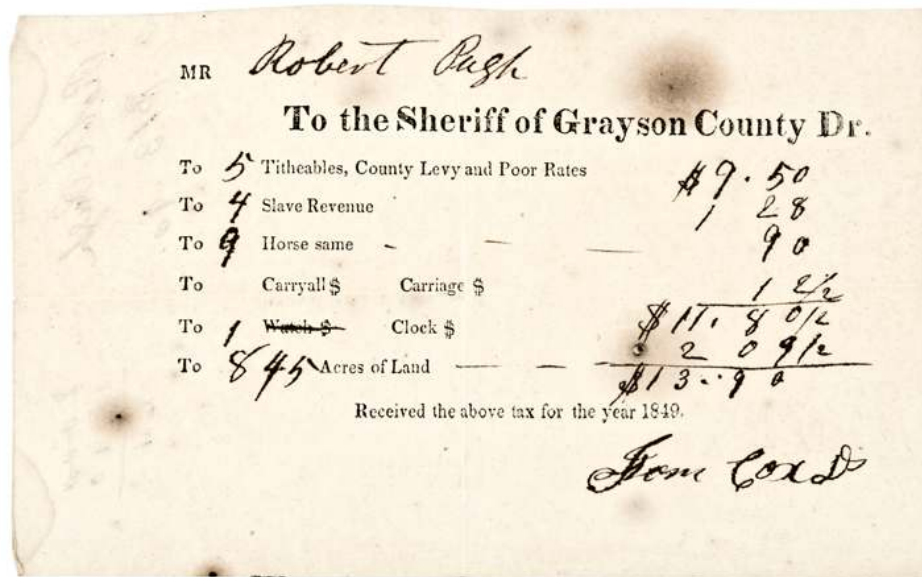 MR Robert Pugh
To the Sheriff of Grayson County Dr.
To 5 Titheables, County Levy and Poor Rates $9.50
To 4 Slave Revenue 1 28
To 9 Horse same - — — 90
To Carryall $ Carriage $ 12½
To 1 Watch $ Clock $ $11.80½
To 845 Acres of Land — — — 2 09½
$13..90
Received the above tax for the year 1849.
Cox DS